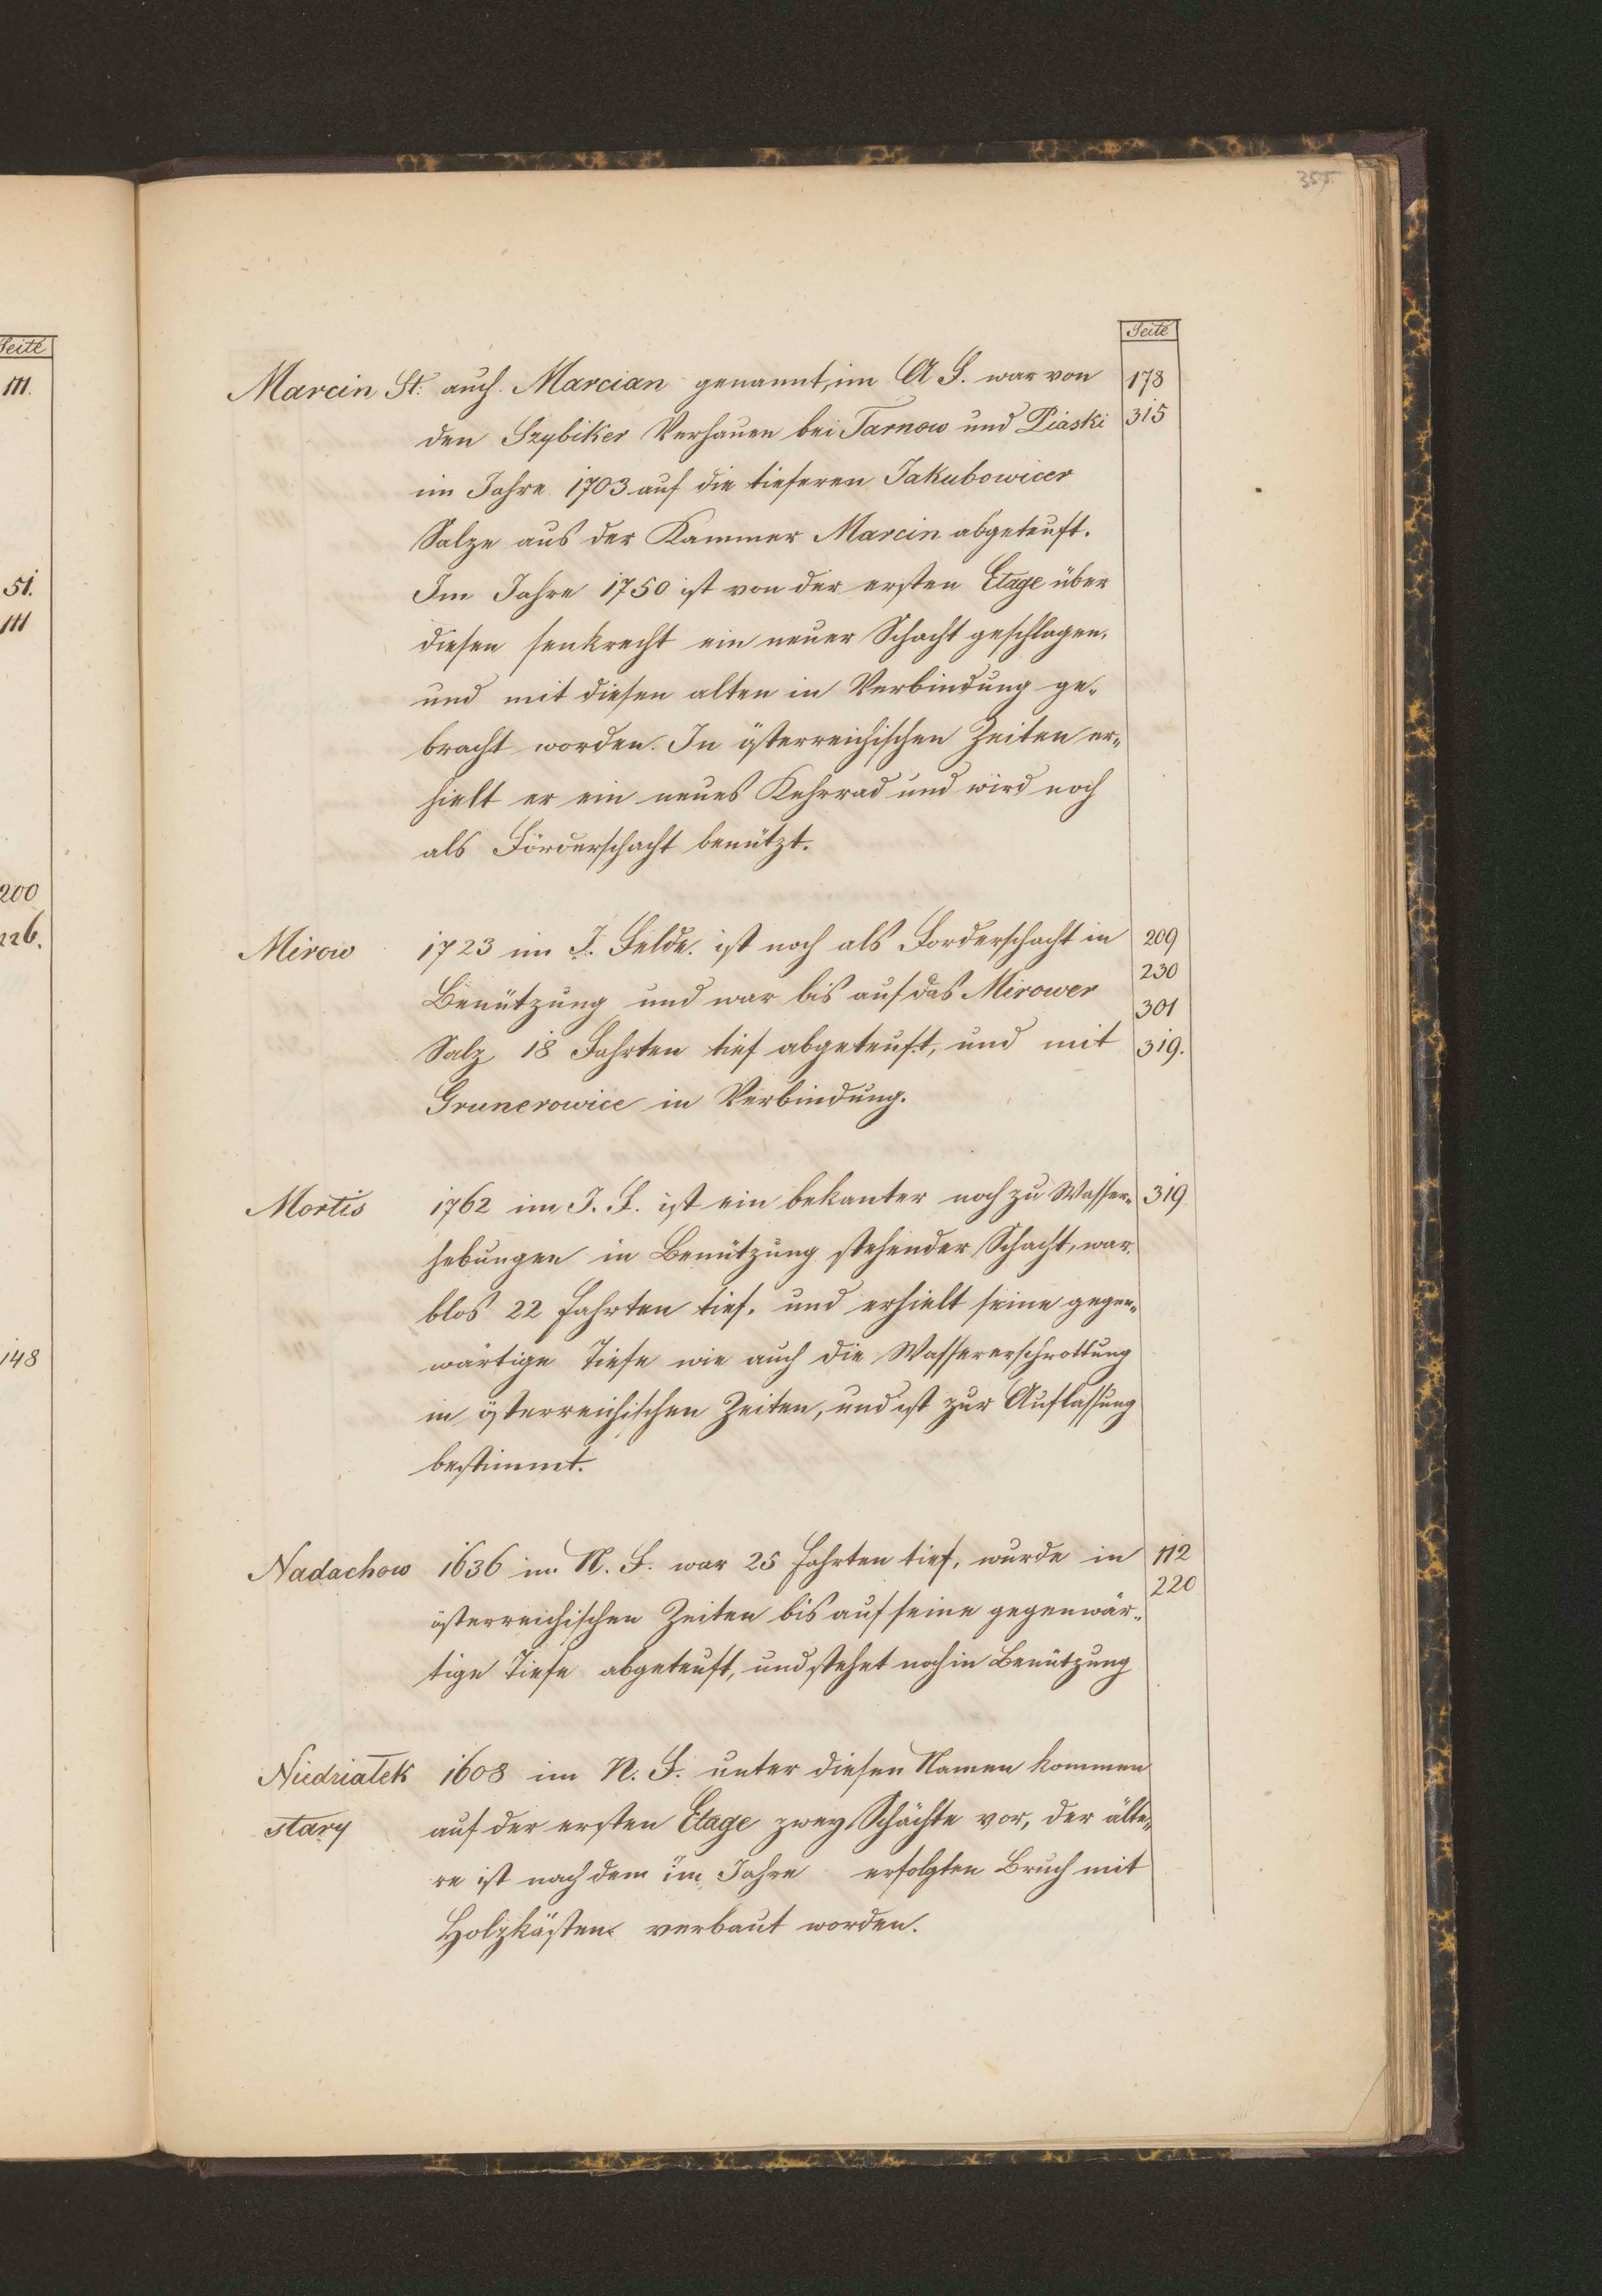 355.
Seite
Seite
111.
51.
111
200
226.
148
Marcin St. auch Marcian genannt, im A F. war von 178
den Szybiker Verhauen bei Tarnow und Piaski 315
im Jahre 1703 auf die tieferen Jakubowicer
Salze aus der Kammer Marcin abgeteuft.
Im Jahre 1750 ist von der ersten Etage über
diesen senkrecht ein neuer Schacht geschlagen,
und mit diesen alten in Verbindung ge-
bracht worden. In österreichischen Zeiten er-
hielt er ein neues Kehrrad und wird noch
als Förderschacht benützt.
Mirow 1723 im J. Felde. ist noch als Forderschacht in 209
230
Benützung und war bis auf das Mirower 301
Salz 18 Fahrten tief abgeteuft, und mit 319.
Grunerowice in Verbindung.
Mortis 1762 im J. F. ist ein bekanter noch zu Wasser- 319
hebungen in Benützung stehender Schacht, war
blos 22 Fahrten tief, und erhielt seine gegen-
wärtige Tiefe wie auch die Wassererschrottung
in österreichischen Zeiten, und ist zur Auflassung
bestimmt.
Nadachow 1636 im N. F. war 25 Fahrten tief, wurde in 112
220
österreichischen Zeiten bis auf seine gegenwär-
tige Tiefe abgeteuft, und stehet noch in Benützung
Niedziałek 1608 im N. F. unter diesen Namen kommen
stary auf der ersten Etage zwey Schächte vor, der älte-
re ist nach dem im Jahre erfolgten Bruch mit
Holzkästen verbaut worden.